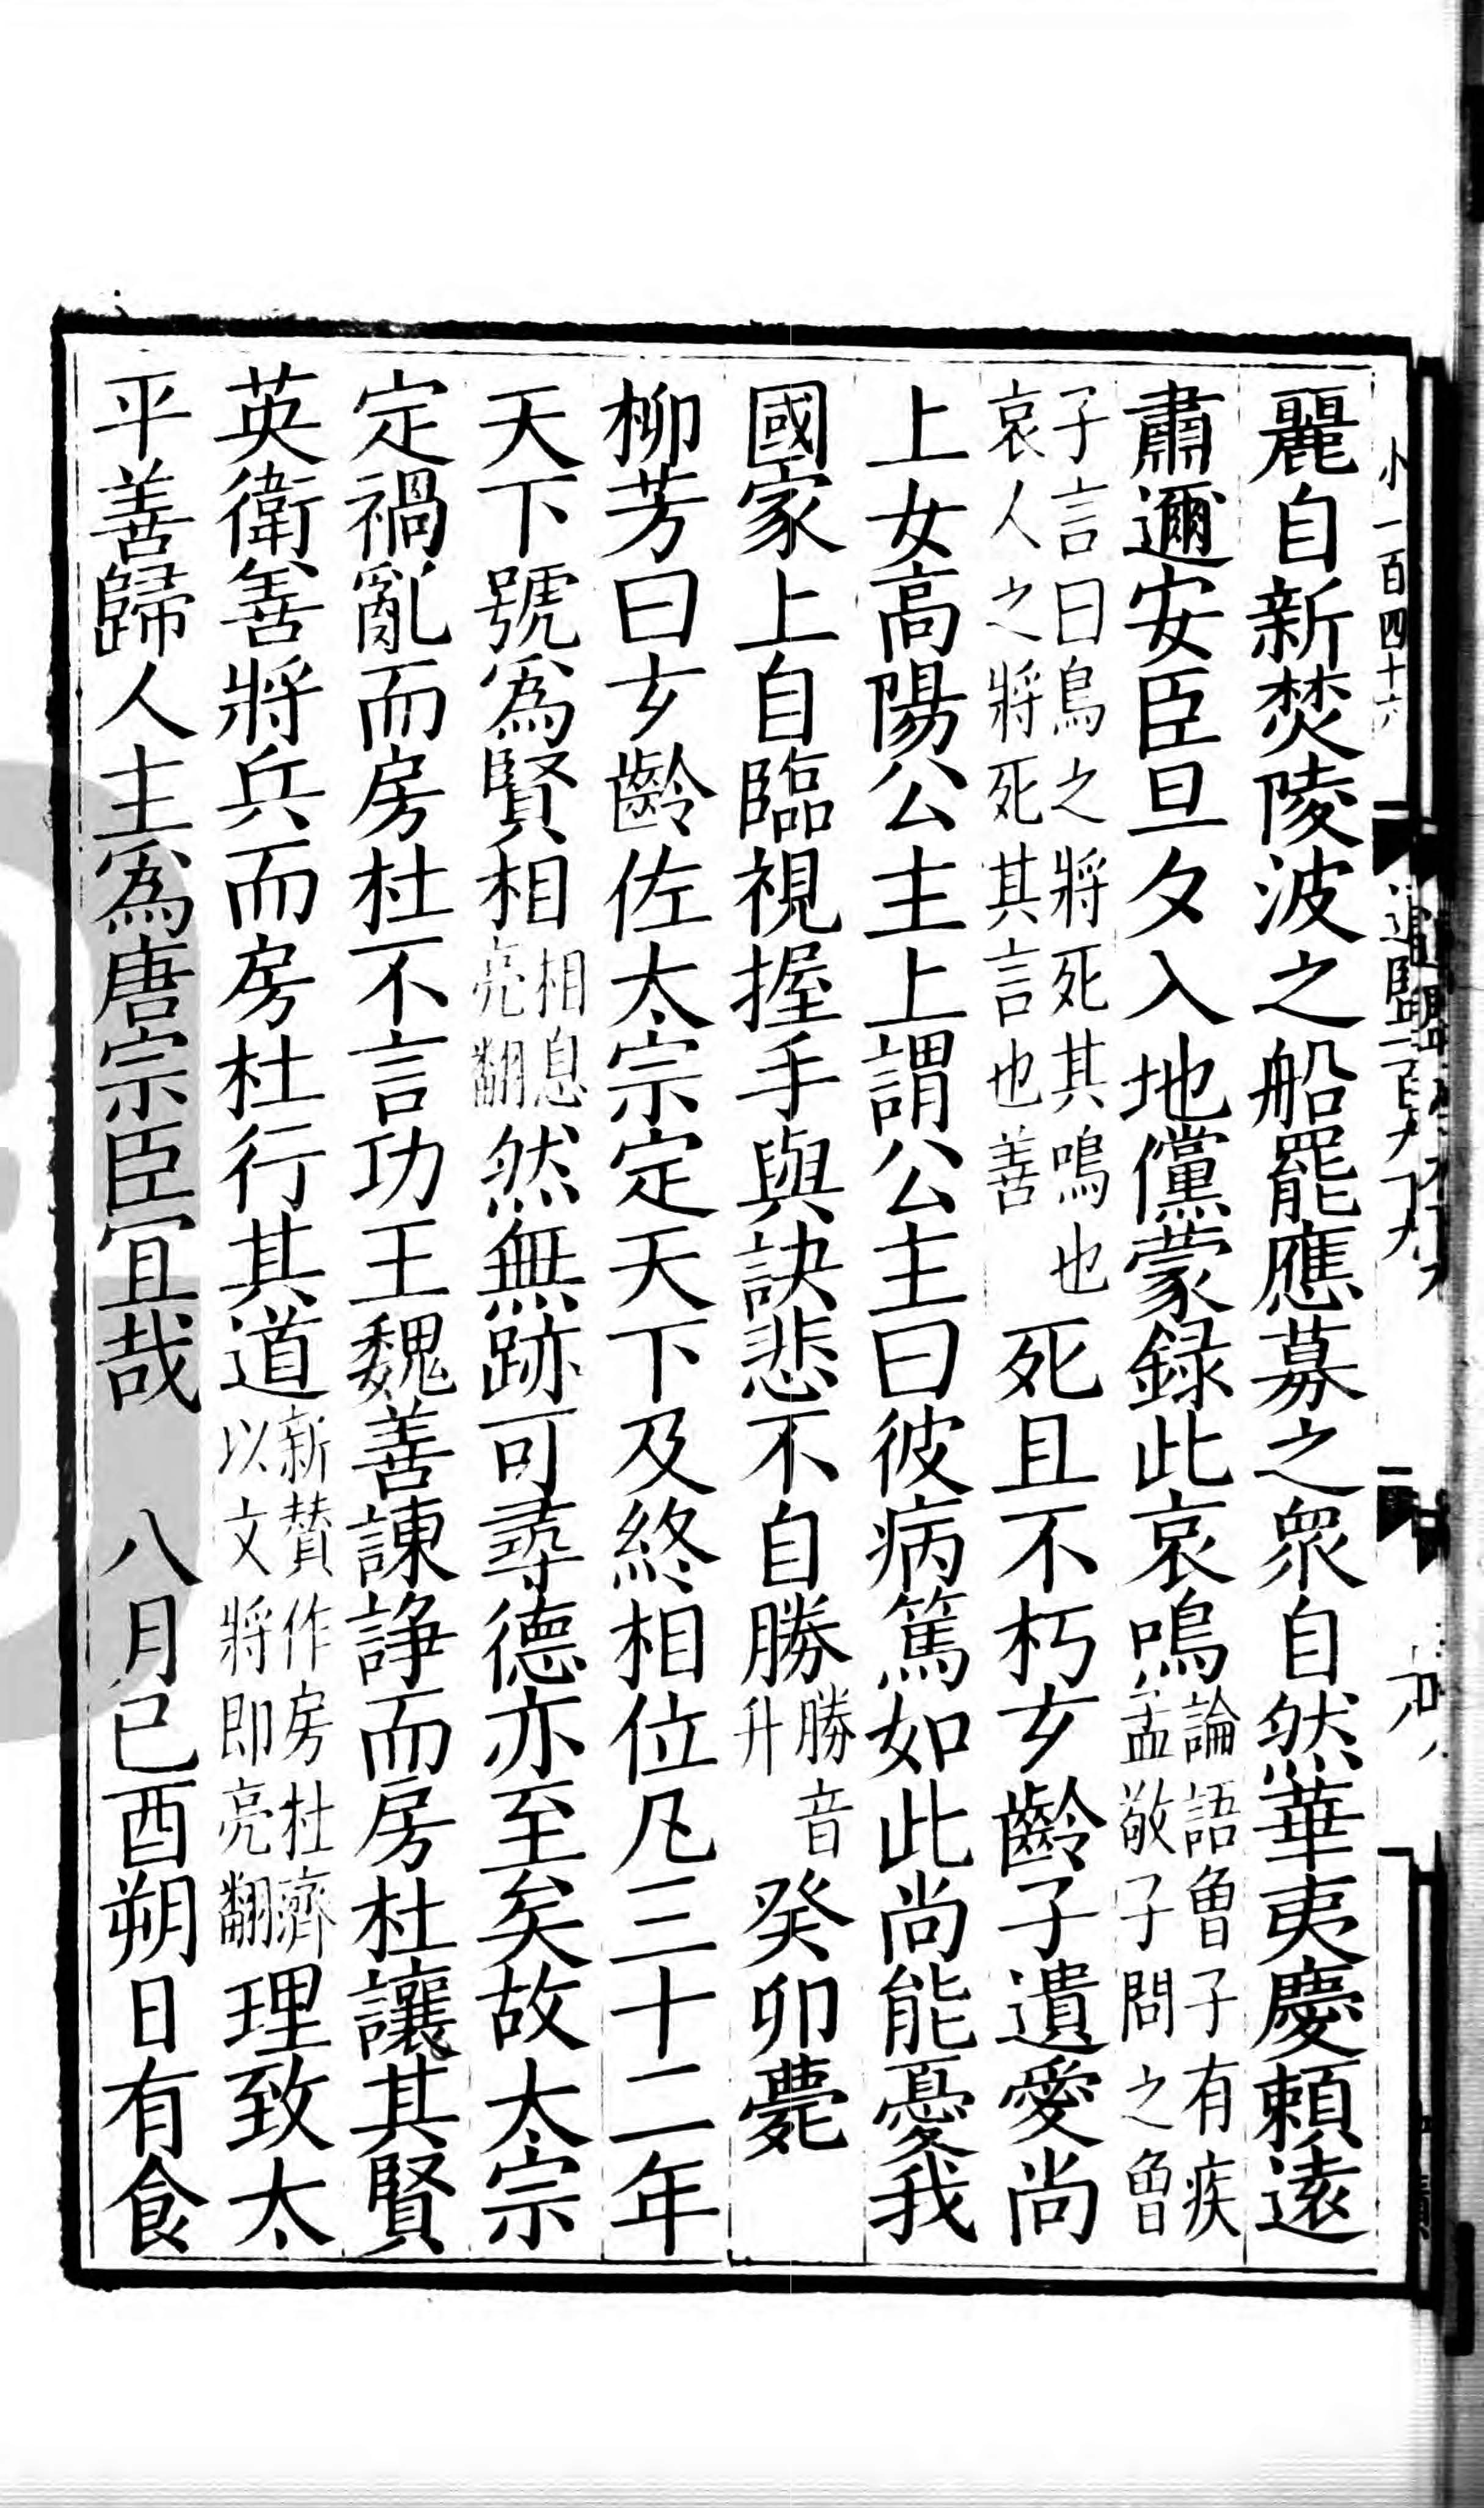 麗自新焚陵波之船罷應募之衆自然華夷慶頼遠
肅邇安臣旦夕入地儻蒙録此哀鳴論語魯子有疾孟敬子問之魯
子言曰鳥之將死其鳴也哀人之將死其言也善死且不朽玄齡子遺愛尚
上女高陽公主上謂公主曰彼病篤如此尚能憂我
國家上自臨視握手與訣悲不自勝勝音升癸卯薨
柳芳曰玄齡佐太宗定天下及終相位凡三十二年
天下號爲賢相相息亮翻然無跡可尋德亦至矣故太宗
定禍亂而房杜不言功王魏善諫諍而房杜讓其賢
英衛善將兵而房杜行其道新贊作房杜濟以文將即亮翻理致太
平善歸人主爲唐宗臣宜哉 八月己酉朔日有食
小一百四十六